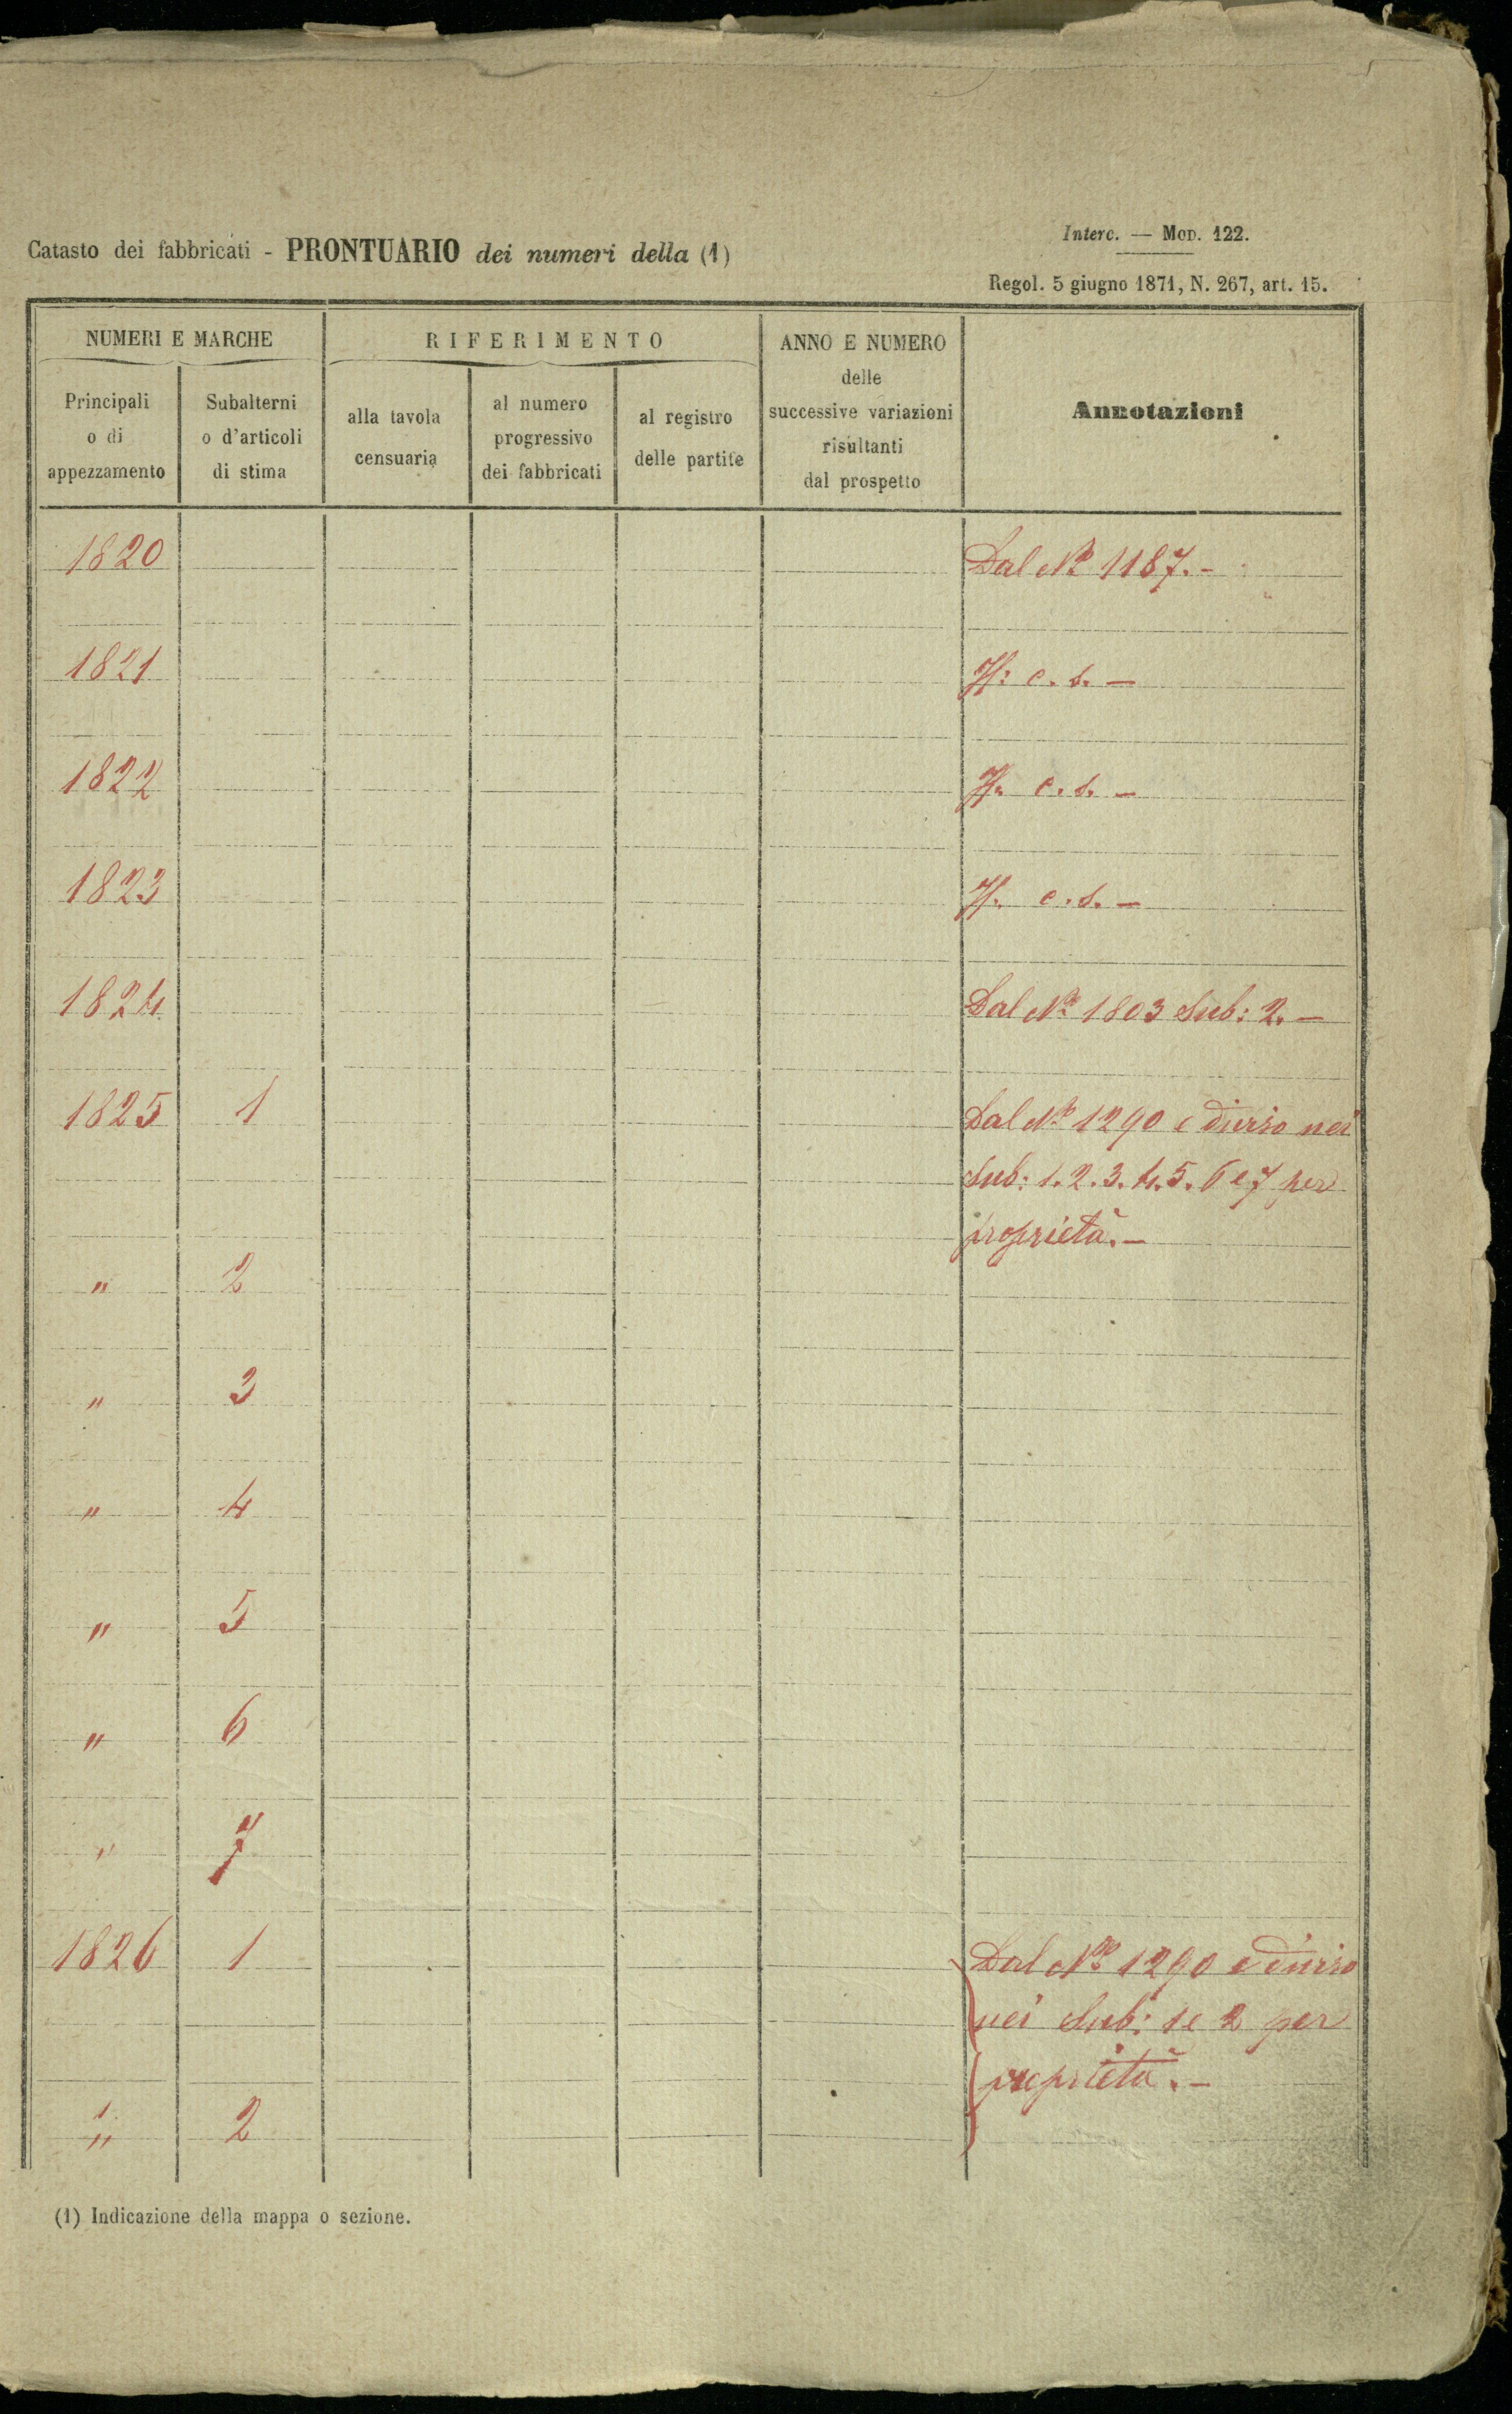 Catasto dei fabbricati - PRONTUARIO dei numeri della (1)
Interc. — Mod. 122.
Regol. 5 giugno 1871, N. 267, art. 15.
NUMERI E MARCHE
RIFERIMENTO
ANNO E NUMERO
delle
successive variazioni
risultanti
dal prospetto
Annotazioni
Principali
o di
appezzamento
Subalterni
o d'articoli
di stima
alla tavola
censuaria
al numero
progressivo
dei fabbricati
al registro
delle partite
1820 Dal No 1187.-
1821 c. s. —
1822 c. s. —
1823 c. s. —
1824 Dal No 1803 Sub: 2. —
1825 1 Dal No 1290 e diviso nei
Sub: 1. 2. 3. 4. 5. 6 e 7 per
proprietà. —
" 2
" 3
" 4
" 5
" 6
" 7
1826 1 Dal No 1290 e diviso
nei Sub: 1 e 2 per
proprietà. —
" 2
(1) Indicazione della mappa o sezione.